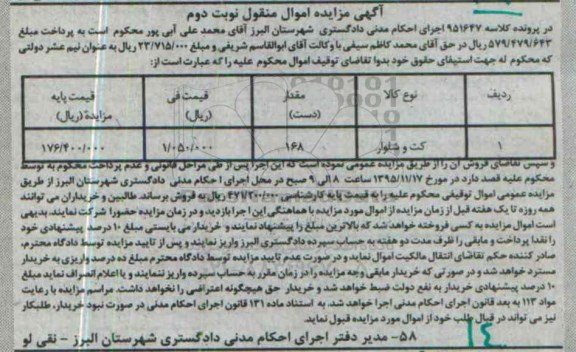 آگهی مزایده اموال منقول نوبت دوم
در پرونده کلاسه ۹۵۱۶۴۷ اجرای احکام مدنی دادگستری شهرستان البرز آقای محمد علی آبی پور محکوم است به پرداخت مبلغ
۵۷۹/۴۷۹/۶۴۳ ریال در حق آقای محمد کاظم سیفی با وکالت آقای ابوالقاسم شریفی و مبلغ ۲۳/۷۱۵/۰۰۰ ریال به عنوان نیم عشر دولتی
که محکوم له جهت استیفای حقوق خود بدوا تقاضای توقیف اموال محکوم علیه را که عبارت است از:
ردیف نوع کالا مقدار (دست) قیمت فی (ریال) قیمت پایه مزایده (ریال)
۱ کت و شلوار ۱۶۸ ۱/۰۵۰/۰۰۰ ۱۷۶/۴۰۰/۰۰۰
و سپس تقاضای فروش آن را از طریق مزایده عمومی نموده است که این اجرا پس از طی مراحل قانونی و عدم پرداخت محکوم به توسط
محکوم علیه قصد دارد در مورخ ۱۳۹۵/۱۱/۱۷ ساعت ۸ الی ۹ صبح در محل اجرای احکام مدنی دادگستری شهرستان البرز از طریق
مزایده عمومی اموال توقیفی محکوم علیه را به قیمت پایه کارشناسی ریال به فروش برساند. طالبین و خریداران می توانند
همه روزه تا یک هفته قبل از زمان مزایده از اموال مورد مزایده با هماهنگی این اجرا بازدید و در زمان مزایده حضورا شرکت نمایند. بدیهی
است اموال مزایده به کسی فروخته خواهد شد که بالاترین مبلغ را پیشنهاد نمایند و خریدار می بایستی مبلغ ۱۰ درصد پیشنهادی خود
را نقدا پرداخت و مابقی را ظرف مدت دو هفته به حساب سپرده دادگستری البرز واریز نمایند و پس از تایید مزایده توسط دادگاه محترم،
صادر کننده حکم تقاضای انتقال مالکیت اموال نماید و در صورت عدم تایید مزایده توسط دادگاه محترم مبلغ ده درصد واریزی به خریدار
مسترد خواهد شد و در صورتی که خریدار مابقی وجه مزایده را در زمان مقرر به حساب سپرده واریز ننمایند و یا اعلام انصراف نماید مبلغ
۱۰ درصد پیشنهادی خریدار به نفع دولت ضبط خواهد شد و خریدار حق هیچگونه اعتراضی را نخواهد داشت. مراسم مزایده با رعایت
مواد ۱۱۳ به بعد قانون اجرای احکام مدنی اجرا خواهد شد. به استناد ماده ۱۳۱ قانون اجرای احکام مدنی در صورت نبود خریدار، طلبکار
نیز می تواند در قبال طلب خود از اموال مورد مزایده قبول نماید.
۵۸- مدیر دفتر اجرای احکام مدنی دادگستری شهرستان البرز - نقی لو